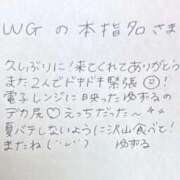 WGの本指名さま
久しぶりに！来てくれてありがとう
また2人でドキドキ緊張☺！
電子レンジに映ったゆずるの
デカ尻♡えっちだった〜
夏バテしないように沢山食べて！
またね(¨) ゆずる